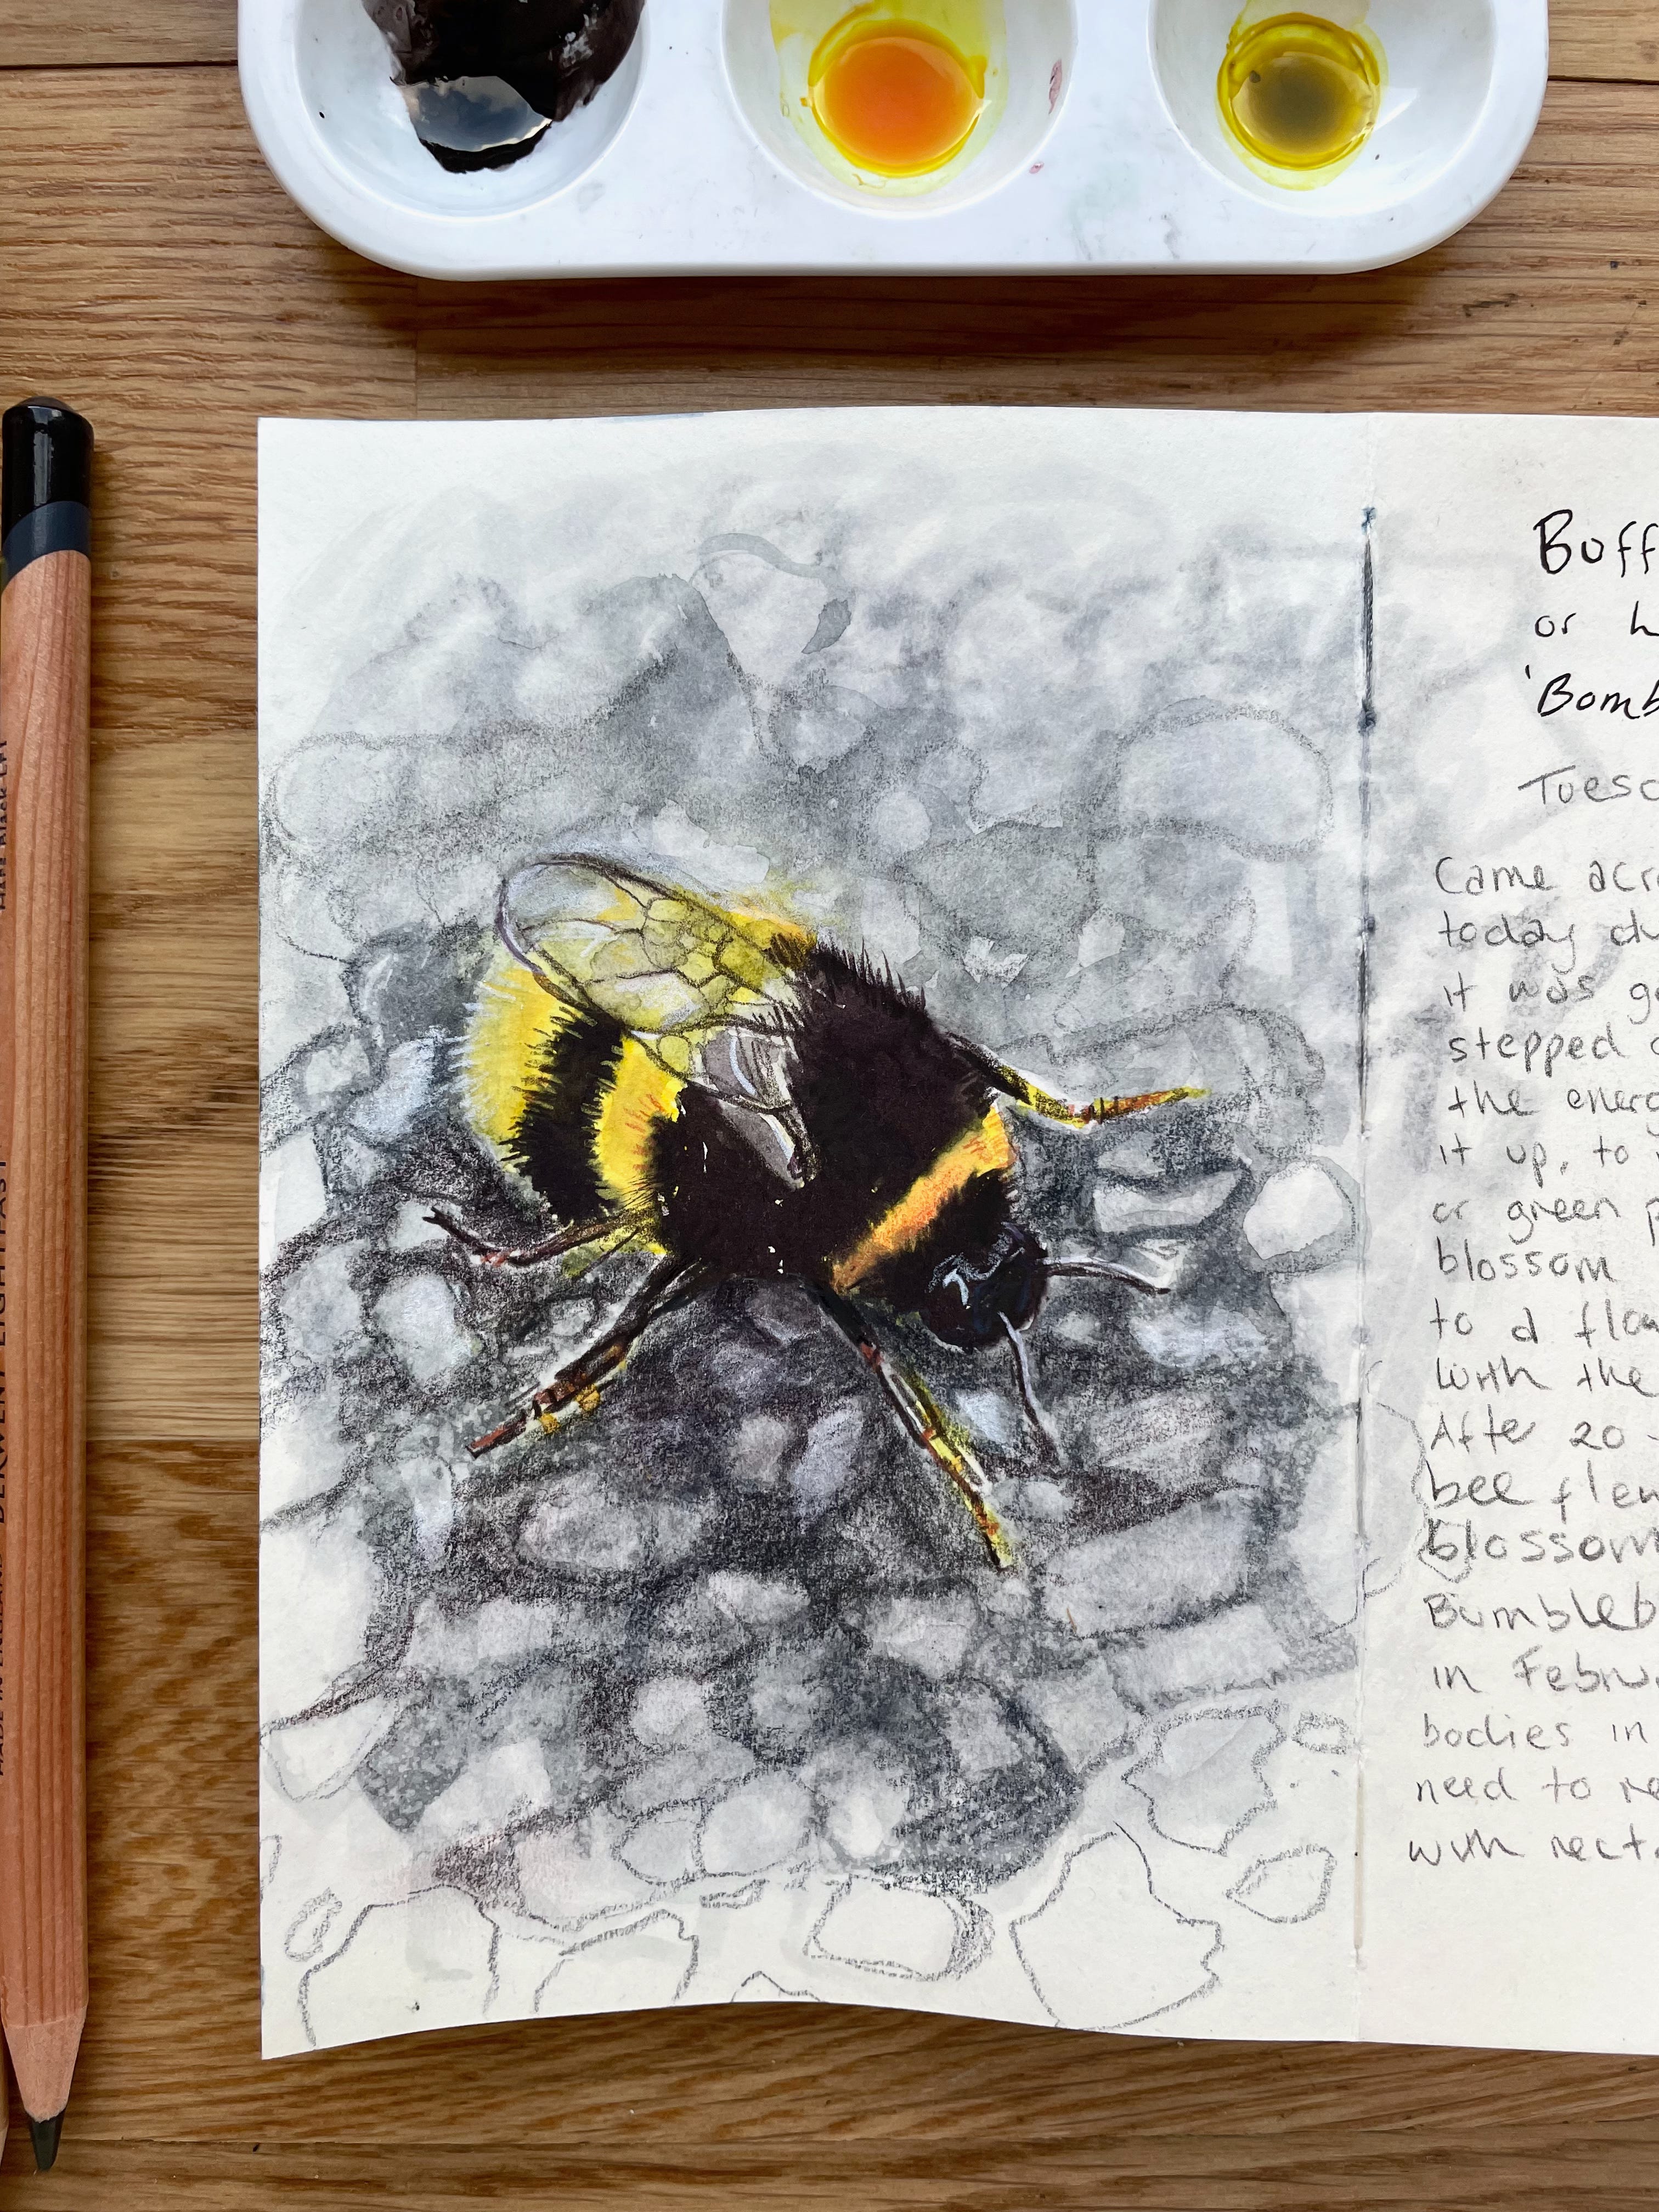 Buff
or h
'Bomb
Tuesd
Came acro
today du
it was go
stepped o
the energ
it up, to
or green p
blossom
to a flow
with the
After 20-
bee flew
blossom
Bumbleb
in Febru
bodies in
need to re
with necta
DERWENT LIGHTFAST
MADE IN ENGLAND